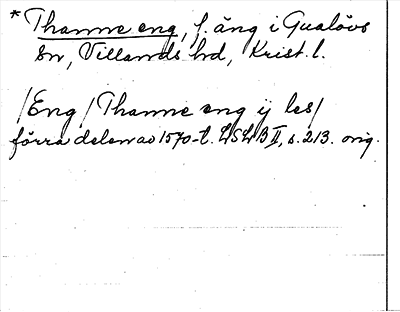 *Thanne eng, f. äng i Gualövs
sn, Villands hd, Krist. l.
/Eng/Thanne eng ij les/
förra delen av 1570-t. LSLB II, s. 213. orig.